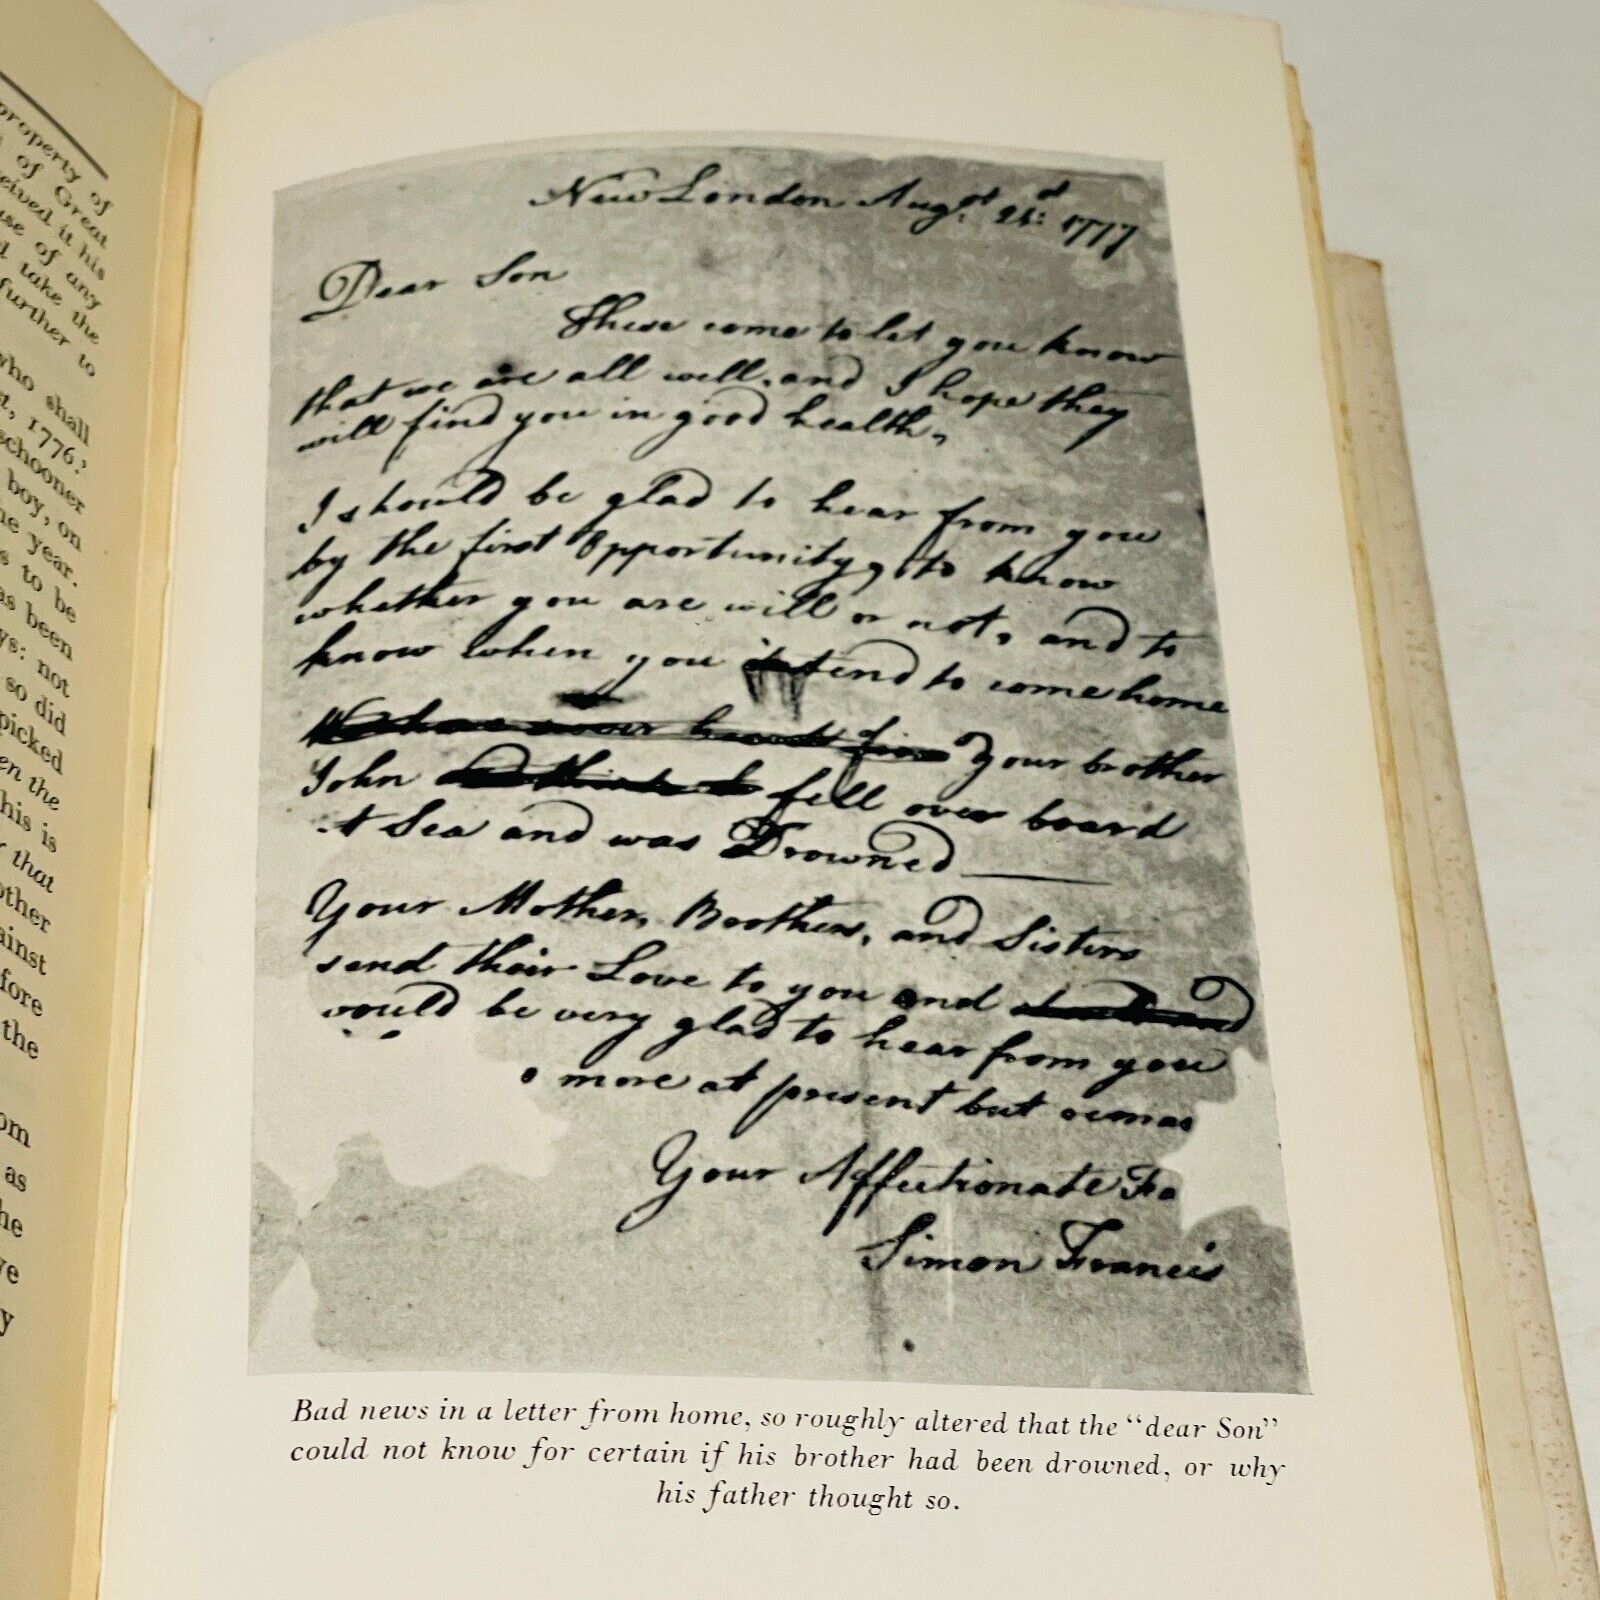 property of
of Great
eived it his
use of any
take the
further to
who shall
1776?
schooner
boy, on
year.
s to be
as been
ys: not
so did
picked
en the
his is
that
other
ainst
fore
the
om
as
he
ve
y
New London Augst 21st 1777
Dear Son
These come to let you know
that we are all well, and I hope they
will find you in good health,
I should be glad to hear from you
by the first Opportunity, to know
whether you are will or not, and to
know when you intend to come home
Your brother
John fell over board
at Sea and was Drowned
Your Mother, Broothers, and Sisters
send their Love to you and
would be very glad to hear from you
o more at present but remai
Your Affectionate Fa
Simon Francis
Bad news in a letter from home, so roughly altered that the "dear Son"
could not know for certain if his brother had been drowned, or why
his father thought so.